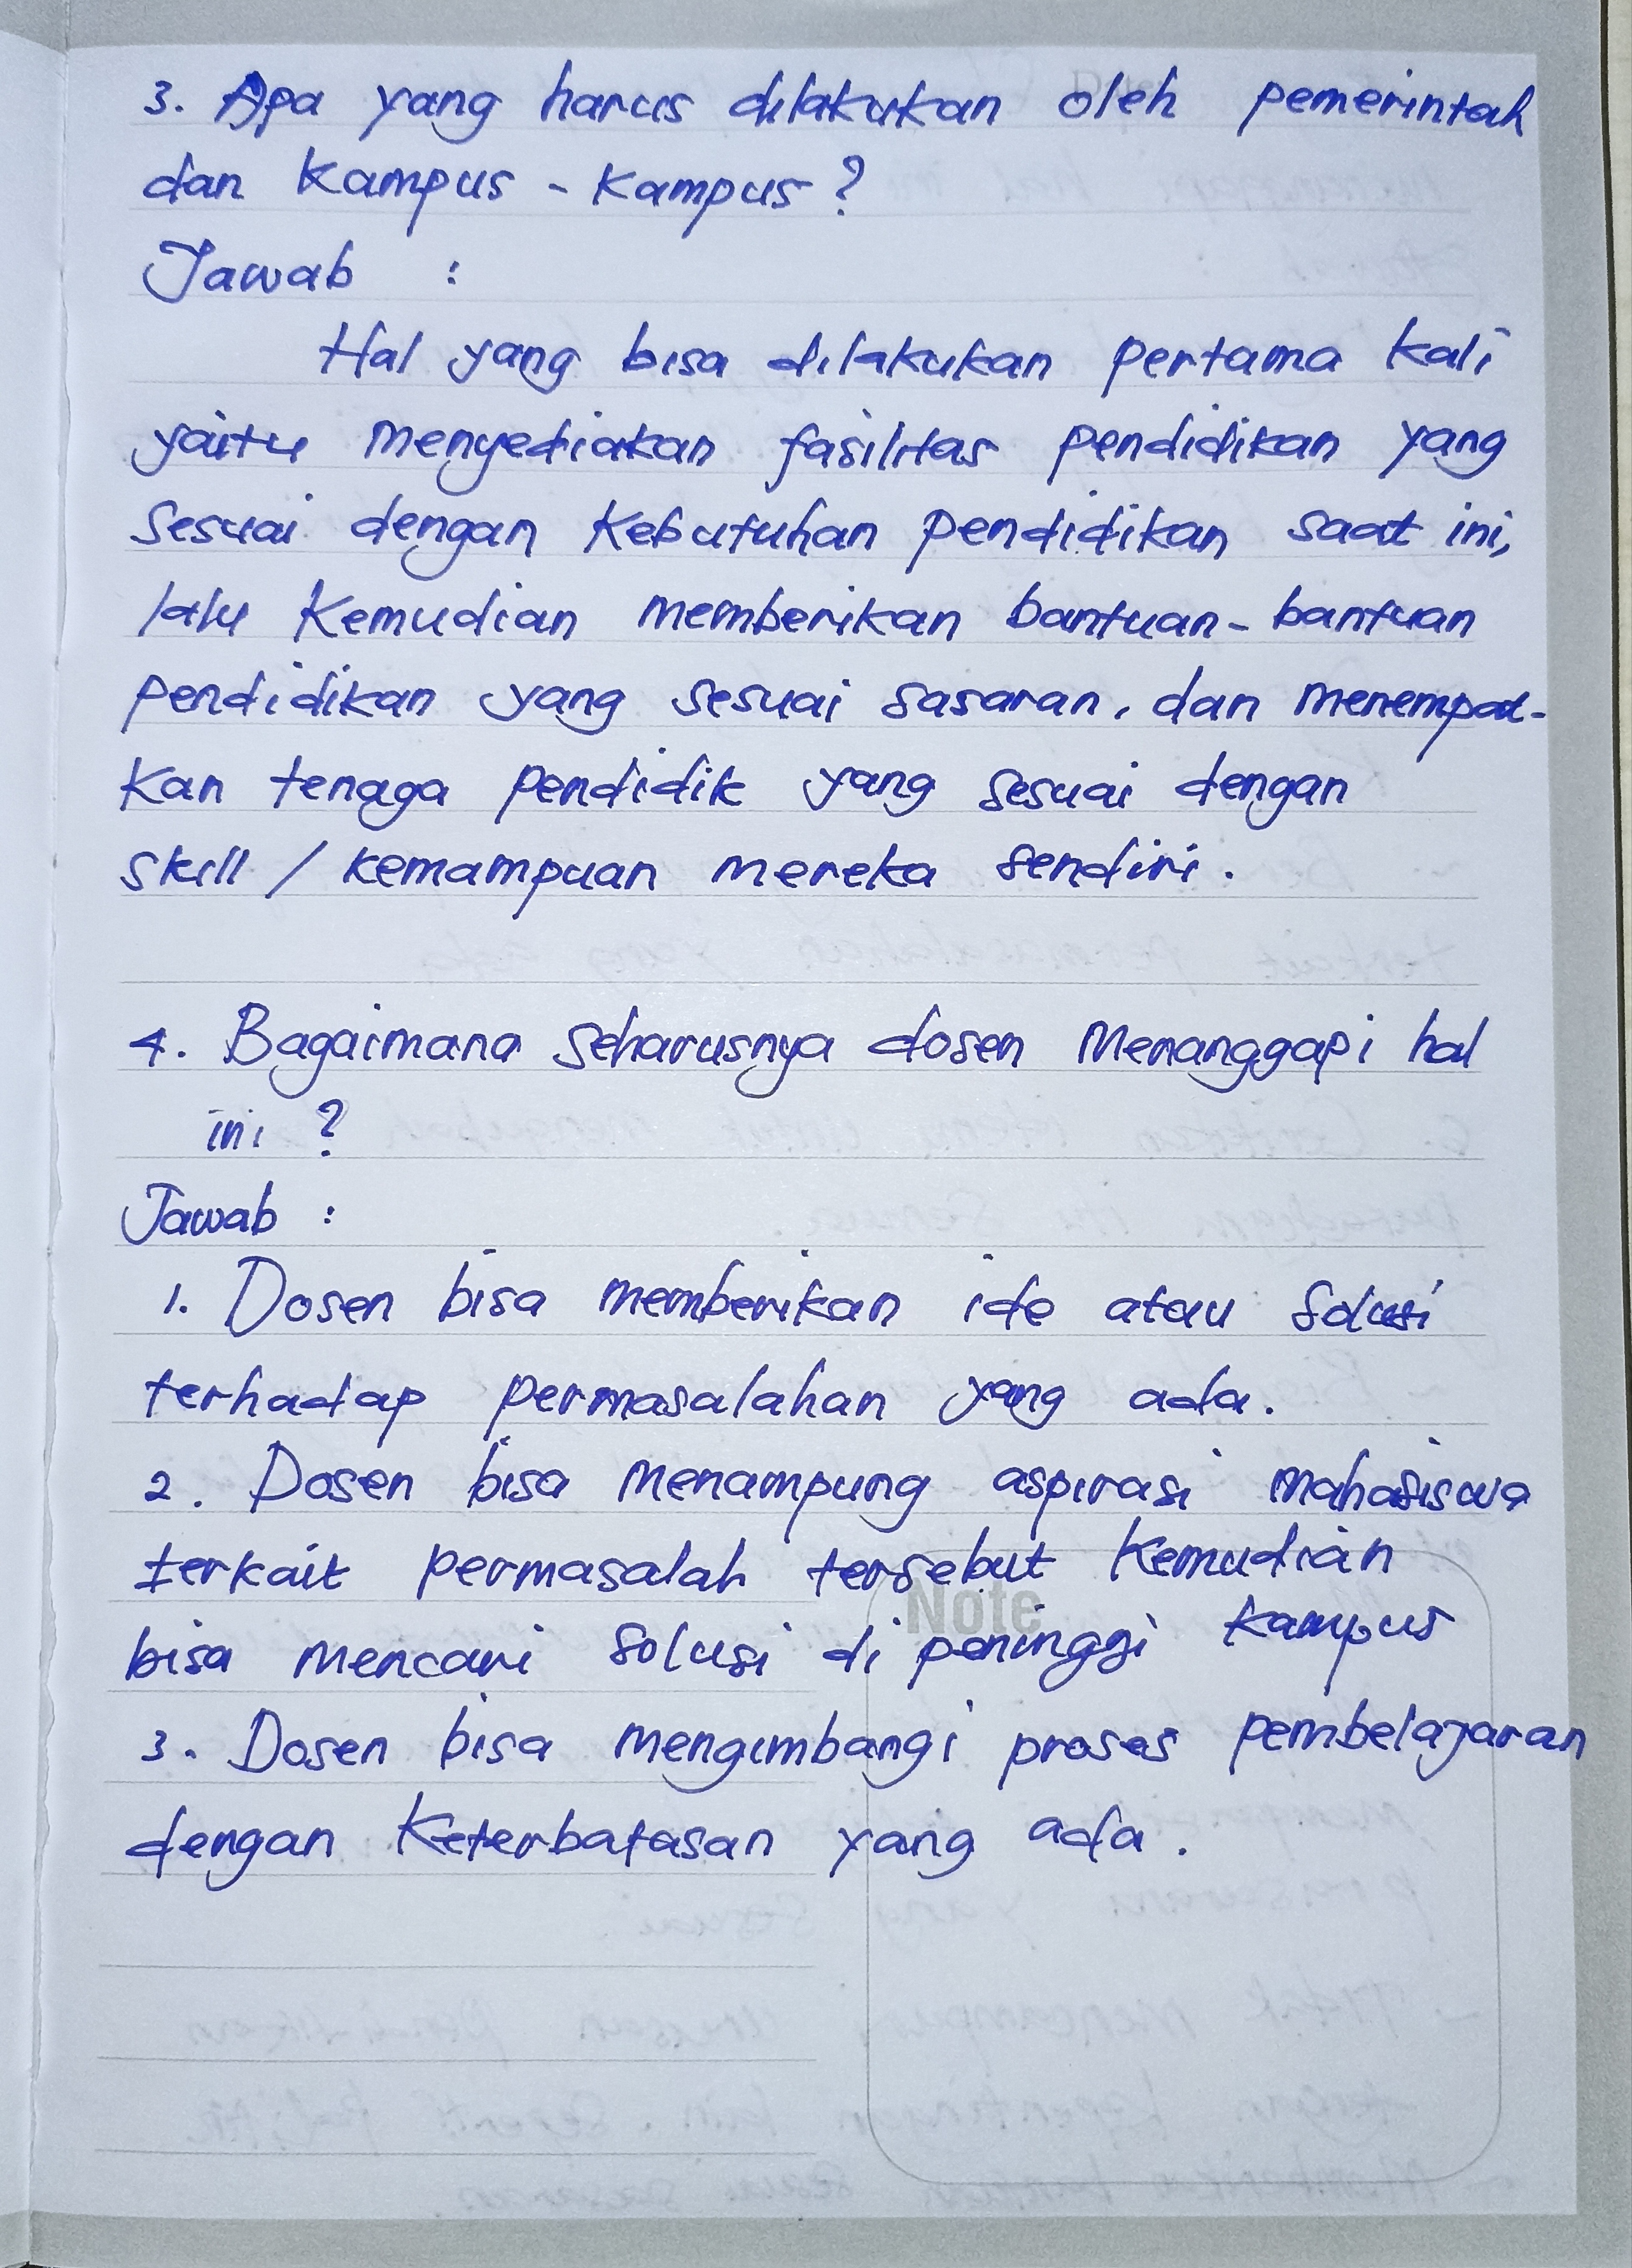 3. Apa yang harus dilakukan oleh pemerintah
dan Kampus - Kampus ?
Jawab :
Hal yang bisa dilakukan pertama kali
yaitu menyediakan fasilitas pendidikan yang
sesuai dengan Kebutuhan pendidikan saat ini,
lalu Kemudian memberikan bantuan - bantuan
pendidikan yang sesuai sasaran, dan menempat-
kan tenaga pendidik yang sesuai dengan
skill / kemampuan mereka sendiri.
4. Bagaimana seharusnya dosen Menanggapi hal
ini ?
Jawab :
1. Dosen bisa memberikan ide atau solusi
terhadap permasalahan yang ada.
2. Dosen bisa menampung aspirasi mahasiswa
terkait permasalah tersebut Kemudian
Note
bisa mencari solusi di peninggi kampus
3. Dosen bisa mengimbangi proses pembelajaran
dengan Keterbatasan yang ada.